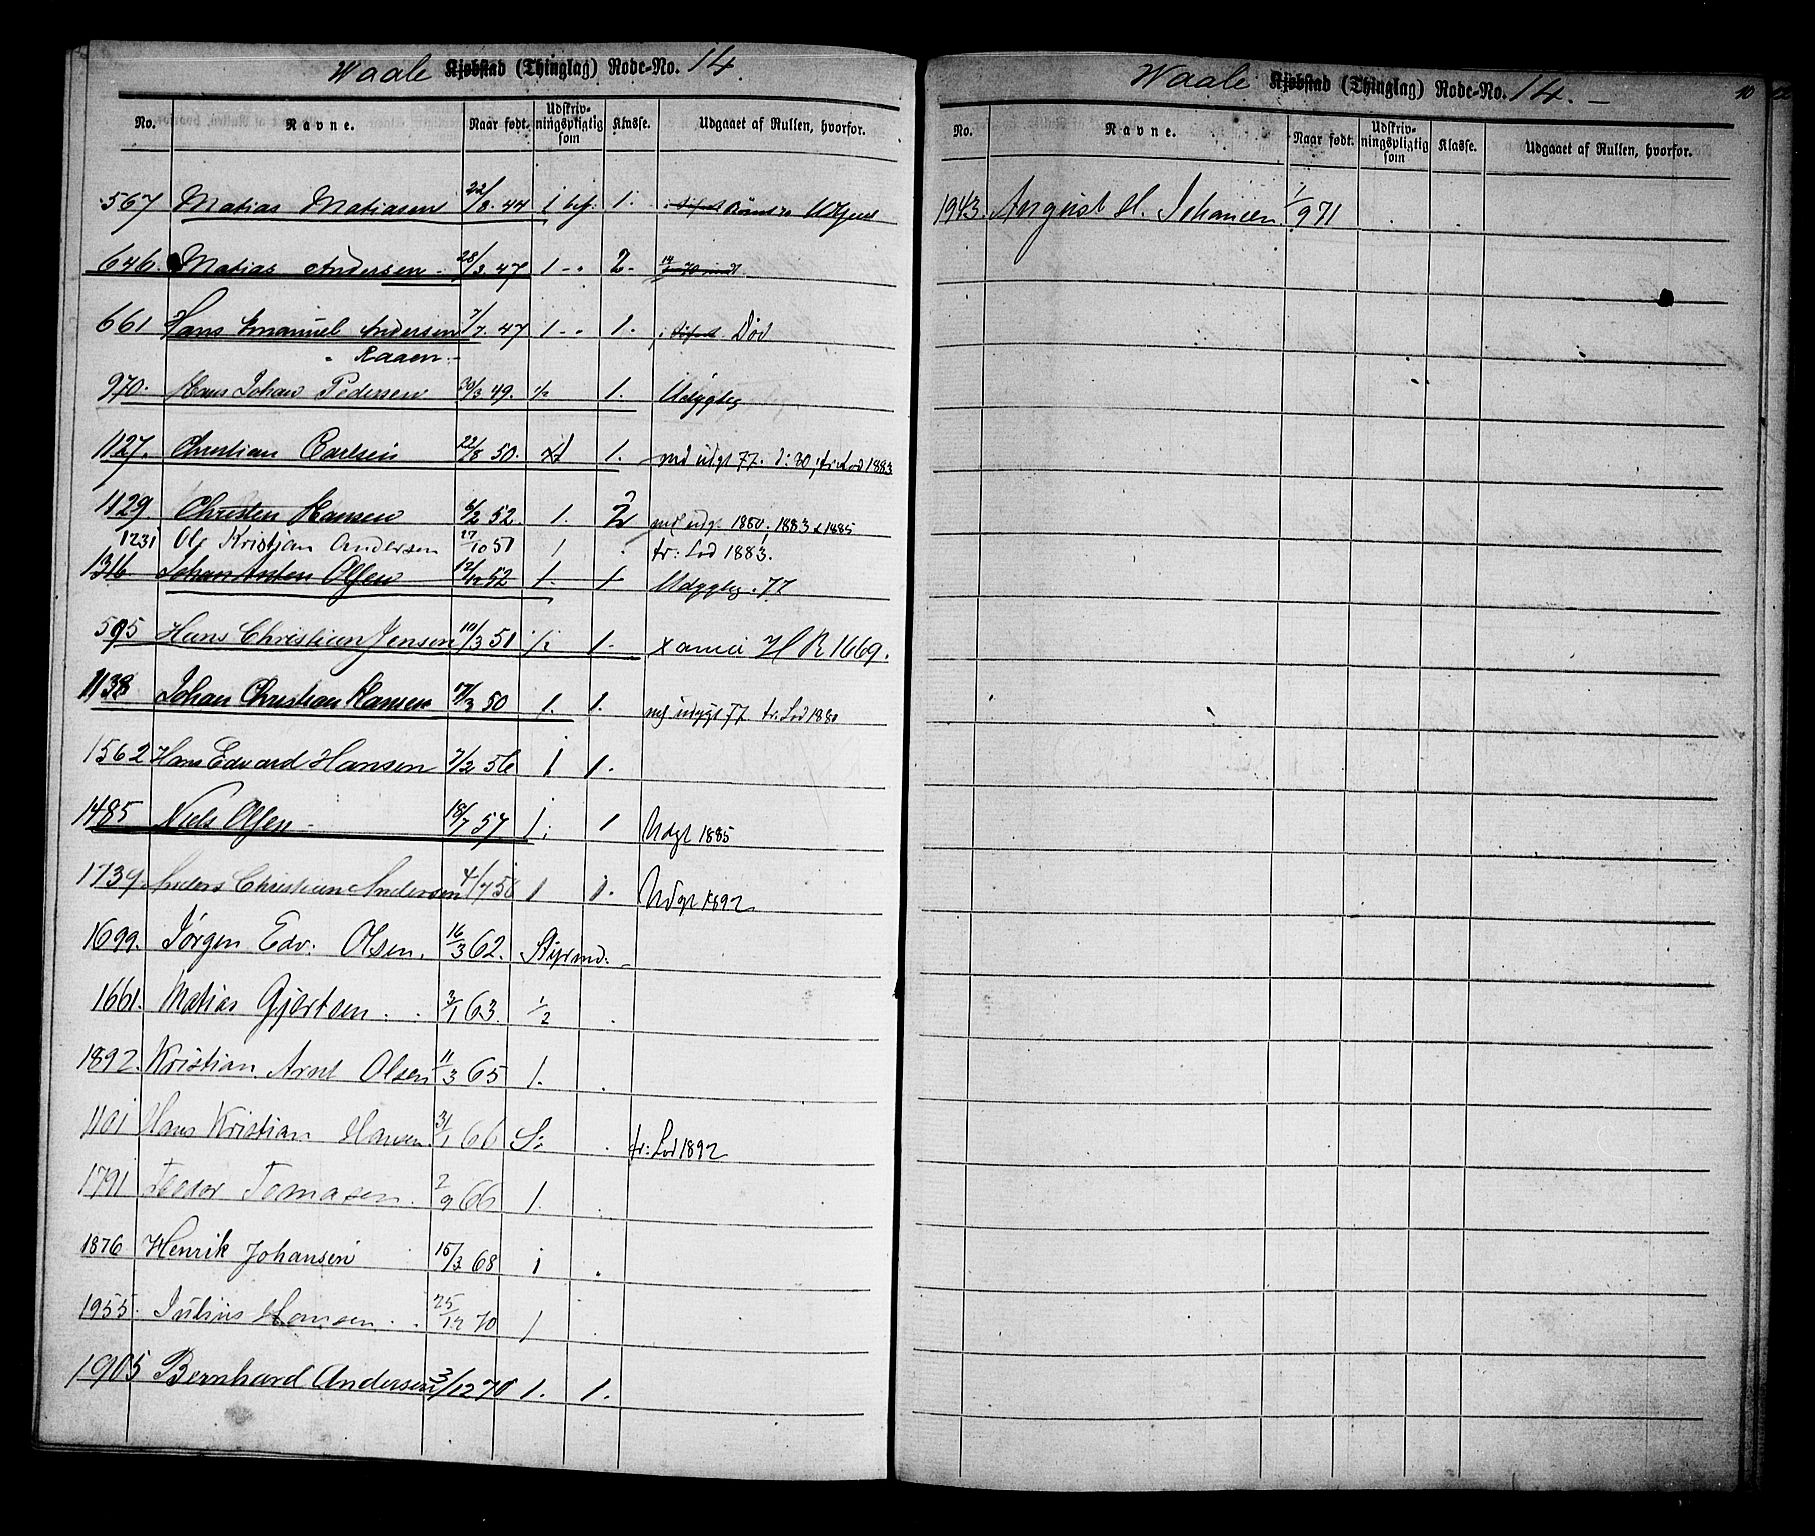 Waale Kjøbstad (Thinglag) Rode-No. 14.
No. Navne. Naar født. Udskrivningspligtig som Klasse. Udgaaet af Rullen, hvorfor.
567 Matias Matiasen 22/8 44 1 1.
646. Matias Andersen 28/3 47 1 - " 2.
661 Hans Emanuel Andersen 7/7 47 1 - " 1. Død
" Raaen.
970. Hans Johan Pedersen 30/3 49. 1/2 1. Udygtig
1127. Christian Carlsen 22/8 50. 1. md udgt 77. fr: Lod 1883
1129 Christen Hansen 6/2 52. 1. 2 md udgt. 1880. 1883 & 1885
1231 Ole Kristian Andersen 27/10 51 1 fr: Lod 1883.
1316 Johan Anton Olsen 12/10 52 1. 1 Udygtig. 77
595 Hans Christian Jensen 10/3 51 1/2 1. Xania HR 1669.
1138 Johan Christian Hansen 17/3 50 1. 1. md udygt 77. fr. Lod 1880
1562 Hans Edvard Hansen 7/2 56 1 1.
1485 Niels Olsen 18/7 57 1. 1 Udgt 1885
1739. Anders Christian Andersen 4/7 58 1 1. Udgt 1892
1699. Jørgen Edv. Olsen. 16/3 62. Styrmd.
1661. Matias Gjertsen 3/1 63. 1/2
1892. Kristian Arnt Olsen 11/3 65 1.
1101 Hans Kristian Hansen 31/1 66 S: fr: Lod 1892
1791 Teodor Tomasen. 2/9 66 1.
1876 Henrik Johansen 15/3 68 1
1955. Julius Hansen 25/12 70 1
1905 Bernhard Andersen 3/12 70 1. 1.
Waale Kjøbstad (Thinglag) Rode-No. 14. 10
No. Navne. Naar født. Udskrivningspligtig som Klasse. Udgaaet af Rullen, hvorfor.
1943. August H. Johansen 1/9 71